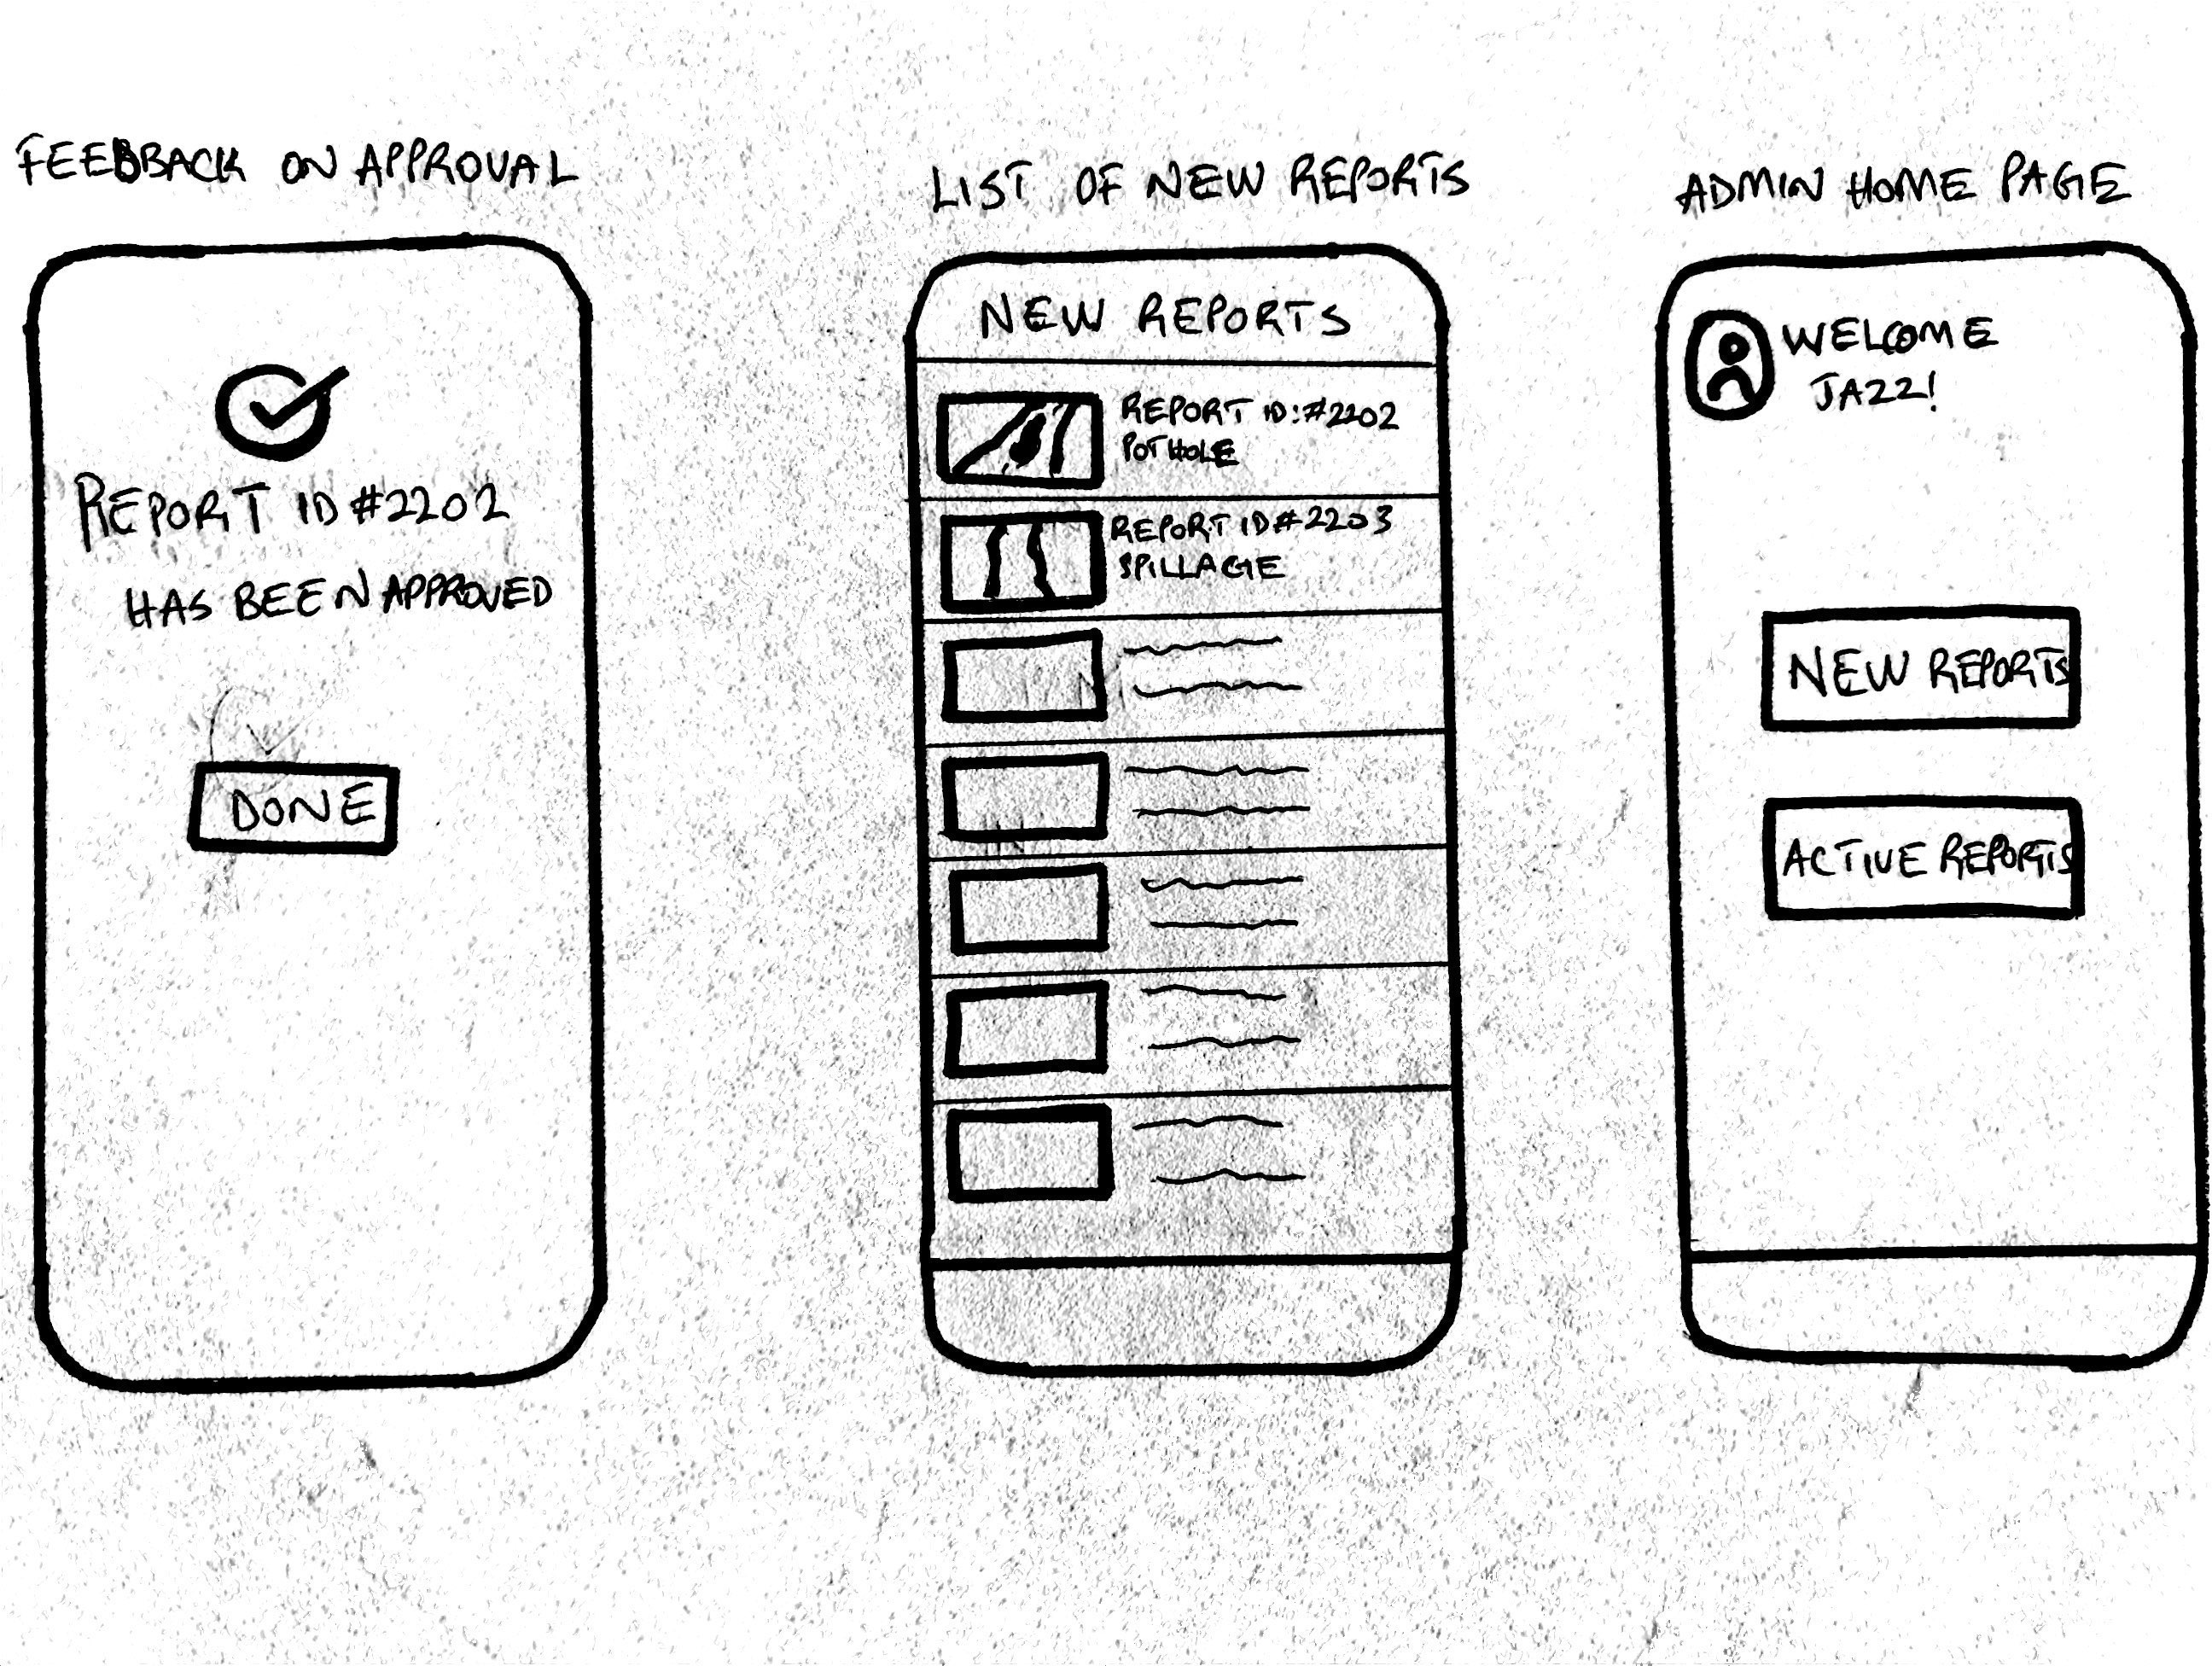 FEEDBACK ON APPROVAL
REPORT ID #2202
HAS BEEN APPROVED
DONE
LIST OF NEW REPORTS
NEW REPORTS
REPORT ID: #2202
POTHOLE
REPORT ID #2203
SPILLAGE
ADMIN HOME PAGE
WELCOME
JAZZ!
NEW REPORTS
ACTIVE REPORTS